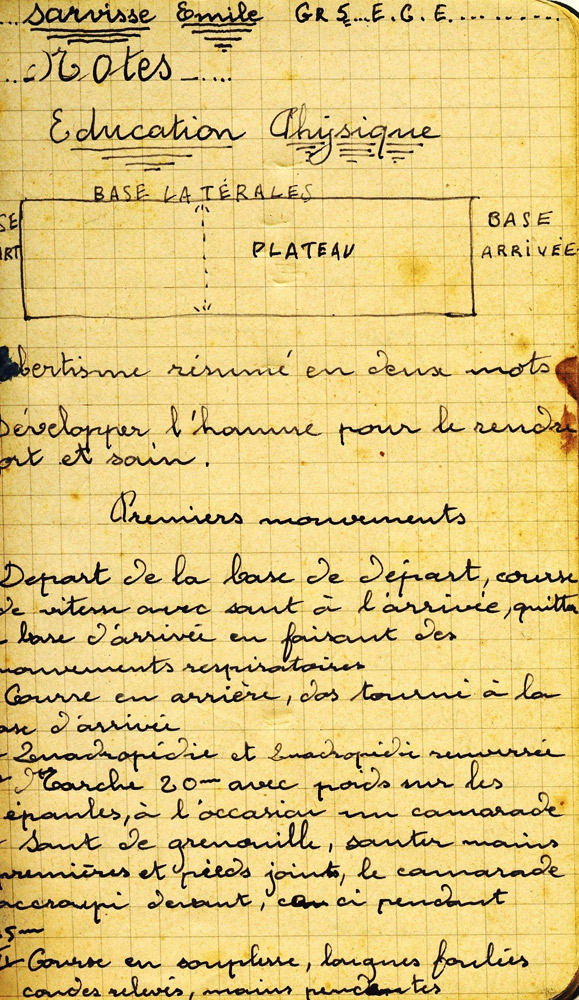 ...Sarvisse Emile GR 5...E.G.E..........
...Notes.....
Education Physique
BASE LATÉRALES
SE
ART
PLATEAU
BASE
ARRIVÉE
bertisme résumé en deux mots
Développer l'homme pour le rendre
ort et sain.
Premiers mouvements
Depart de la base de départ, course
de vitesse avec saut à l'arrivée, quitter
base d'arrivée en faisant des
mouvements respiratoires
Course en arrière, dos tourné à la
ase d'arrivée
- Quadropédie et Quadropédie renversée
- Marche 20m avec poids sur les
épaules, à l'occasion un camarade
- Saut de grenouille, sauter mains
premières et pieds joints, le camarade
accroupi devant, ci pendant
5m
- Course en souplesse, longues foulées
coudes relevés, mains pendantes